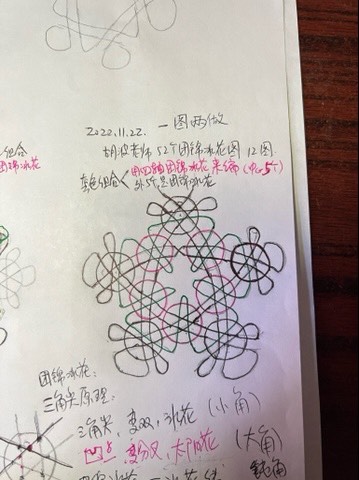 2020.11.22. 一图两做
组合
胡波老师52个团锦冰花图 12图.
团锦冰花
套色组合 用四轴团锦冰花来编（内5个）
外5个是团锦冰花
团锦冰花:
三角尖原理:
三角尖, 变双, 冰花 (小角)
变分叉, 太阳花 (大角)
钝角